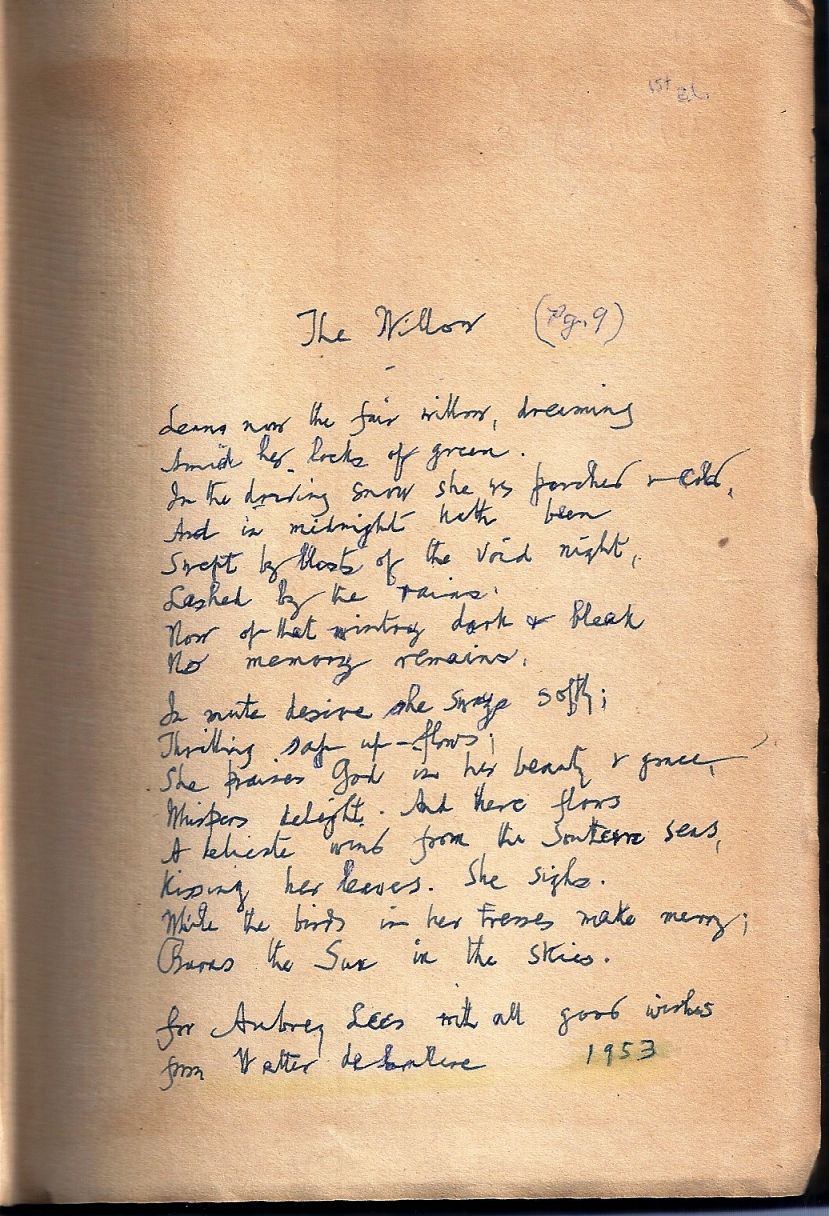 1st Ed.
The Willow (Pg. 9)
Leans now the fair willow, dreaming
Amid her locks of green.
In the driving snow she was parched & cold,
And in midnight hath been
Swept by blasts of the void night,
Lashed by the rains.
Now of that wintry dark & bleak
No memory remains.
In mute desire she sways softly;
Thrilling sap up-flows;
She praises God in her beauty & grace,
Whispers delight. And there flows
A delicate wind from the Southern seas,
Kissing her leaves. She sighs.
While the birds in her tresses make merry;
Burns the Sun in the skies.
for Aubrey Lees with all good wishes
from Walter de la Mare 1953